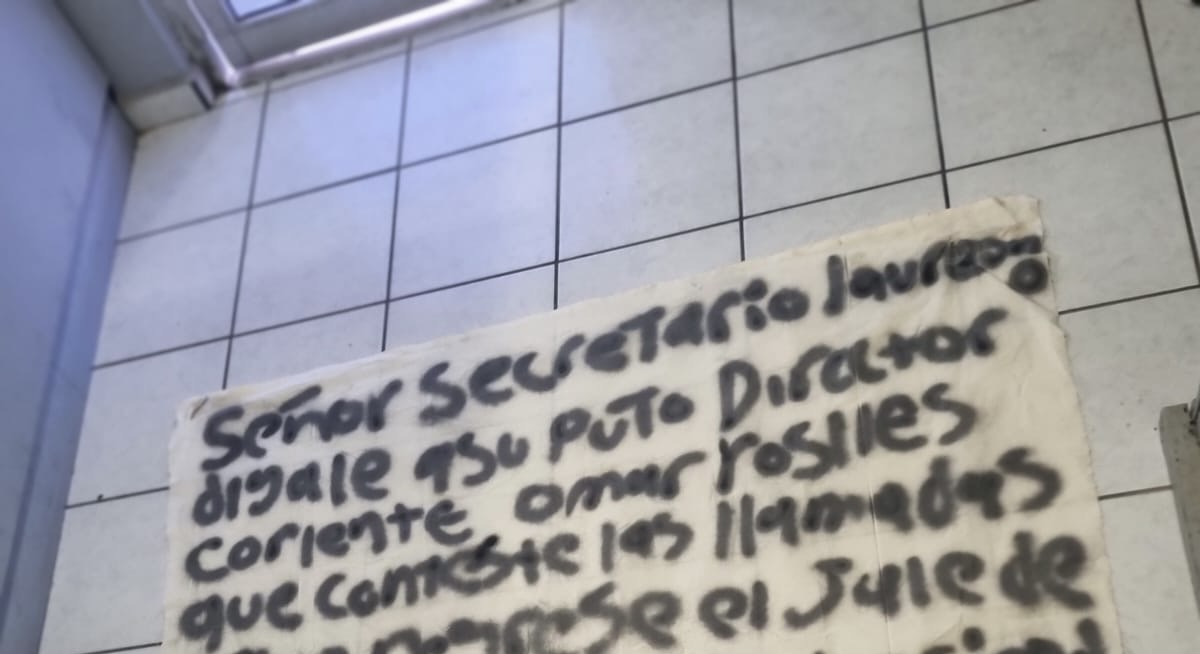 Señor Secretario laureano
digale asu puto Director
coriente omar roslles
que conteste las llamadas
el Jale de